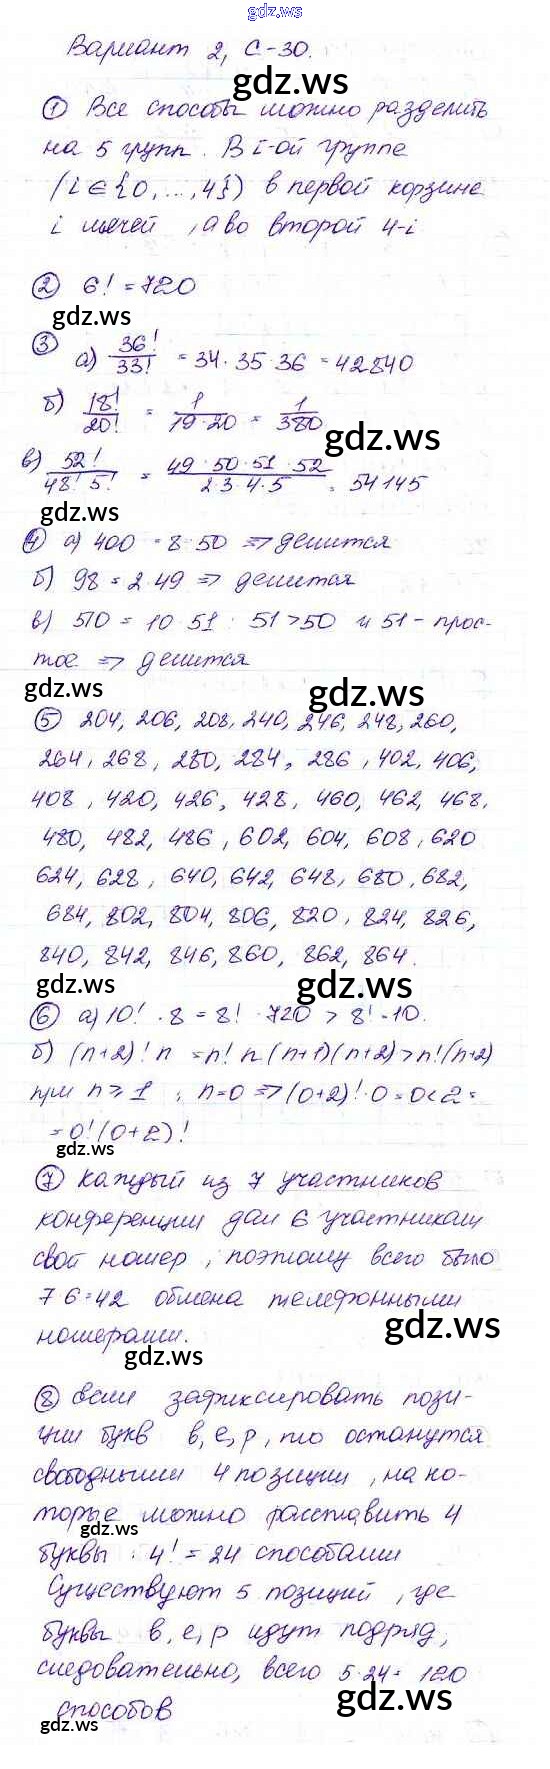 gdz.ws
Вариант 2, С-30.
gdz.ws
① Все способы можно разделить
на 5 групп. В i-ой группе
(i ∈ {0, ..., 4}) в первой корзине
i мячей, а во второй 4-i
② 6! = 720
gdz.ws
③ а) 36!/33! = 34·35·36 = 42840
б) 18!/20! = 1/19·20 = 1/380
gdz.ws
в) 52!/48! 5! = 49·50·51·52/2·3·4·5 = 54145
gdz.ws
④ а) 400 = 8·50 => делится
б) 98 = 2·49 => делится
в) 510 = 10·51 : 51>50 и 51 - прос-
тое => делится
gdz.ws gdz.ws
⑤ 204, 206, 208, 240, 246, 248, 260,
264, 268, 280, 284, 286, 402, 406,
408, 420, 426, 428, 460, 462, 468,
480, 482, 486, 602, 604, 608, 620
624, 628, 640, 642, 648, 680, 682,
684, 802, 804, 806, 820, 824, 826,
840, 842, 846, 860, 862, 864.
gdz.ws gdz.ws
⑥ а) 10! · 8 = 8! · 720 > 8! · 10.
б) (n+2)! n = n! n (n+1)(n+2) > n!(n+2)
при n ≥ 1 ; n=0 => (0+2)! · 0 = 0 < 2 =
= 0! (0+2)!
gdz.ws
⑦ Каждый из 7 участников
конференции дал 6 участникам
свой номер, поэтому всего было
7·6=42 обмена телефонными
номерами.
gdz.ws
gdz.ws
⑧ Если зафиксировать пози-
ции букв в, е, р, то останутся
свободными 4 позиции, на ко-
торые можно расставить 4
gdz.ws
буквы : 4! = 24 способами
Существуют 5 позиций, где
буквы в, е, р идут подряд,
следовательно, всего 5·24 = 120
gdz.ws
способов
gdz.ws